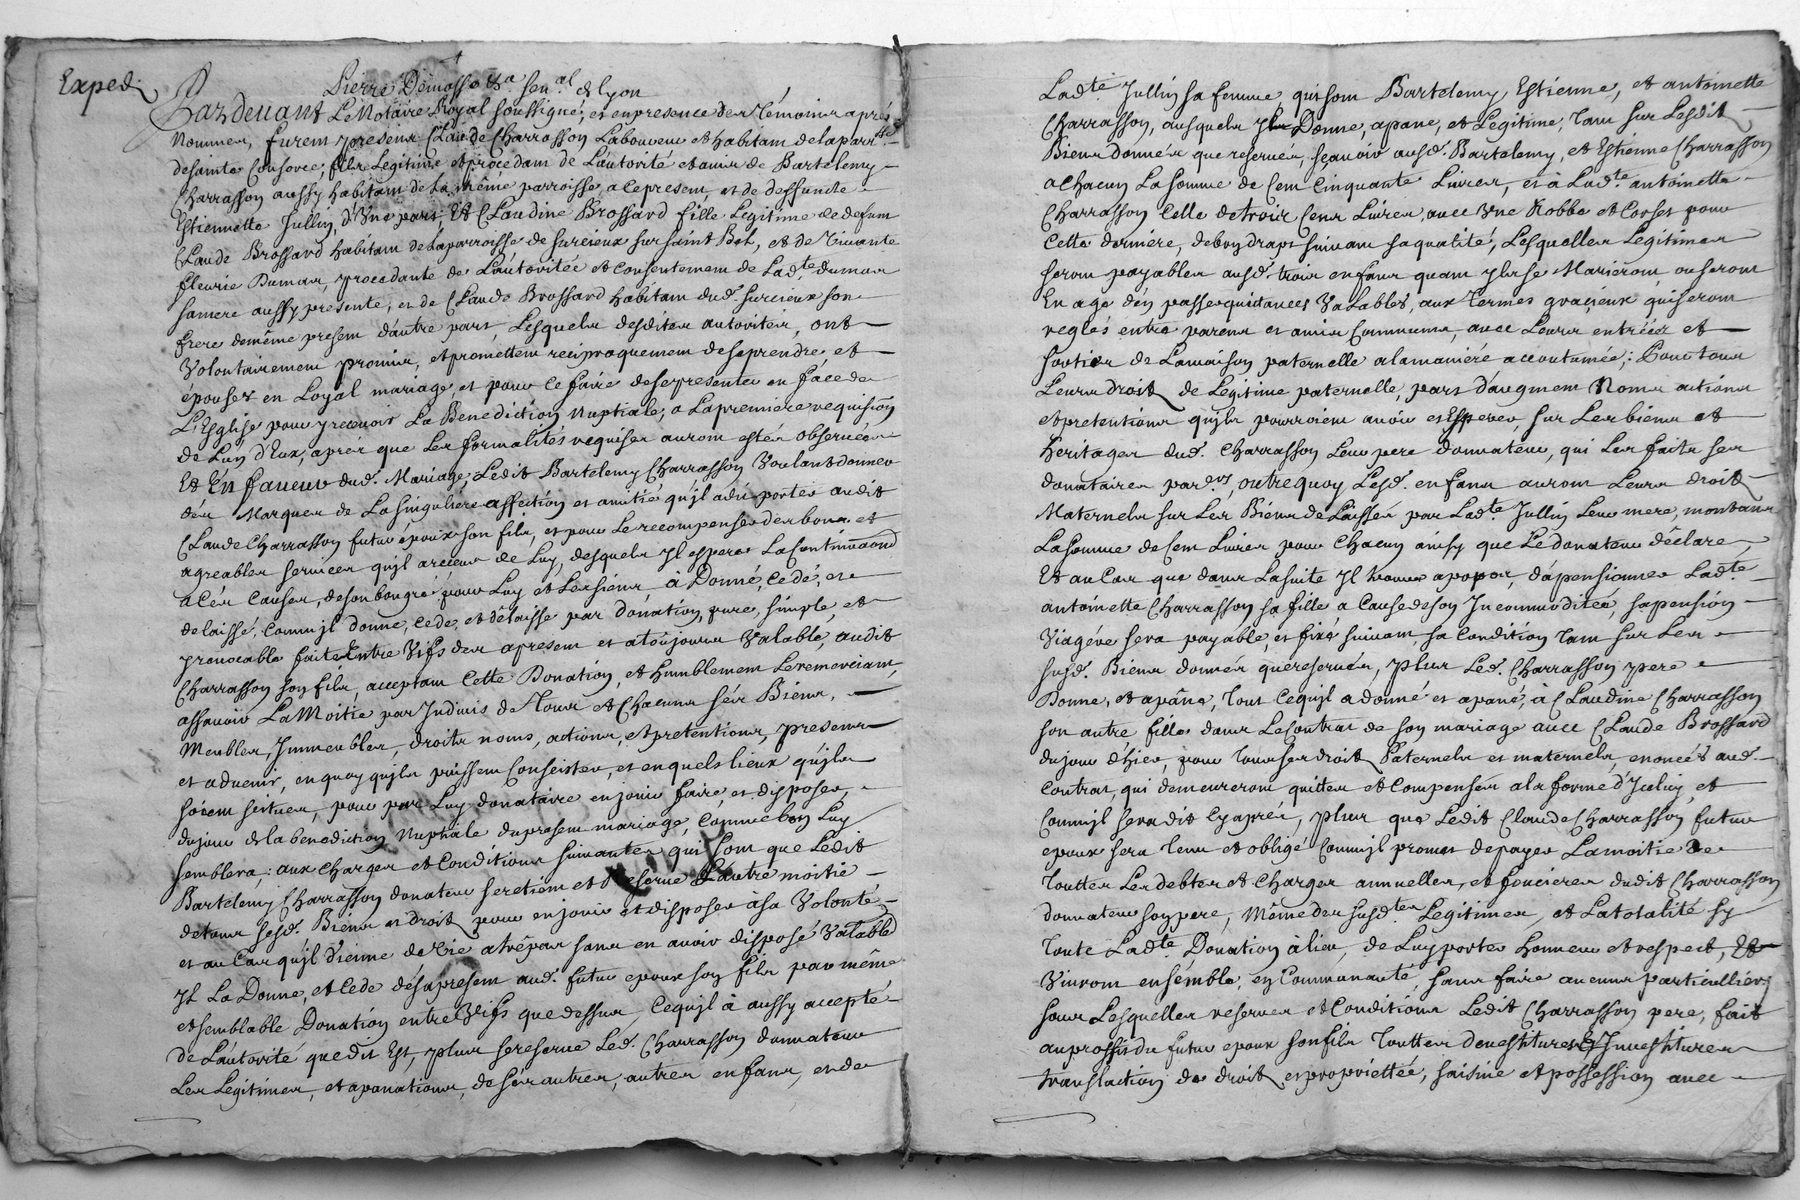 Exped.
Pierre Demasso &a. sen.al de Lyon
Pardevant Le Notaire Royal soussigné, et en presence des Témoins aprés
Nommes, furent presens Claude Charrasson Laboureur et habitant de la parr.sse
de sainte Consorce, fils Legitime et procedant de L'autorité et avis de Bartelemy
Charrasson aussy habitant de La même parroisse a ce present, et de deffuncte
Estiennette Jullin, d'Une part, Et Claudine Brossard fille Legitime de defunt
Claude Brossard habitant de La parroisse de Surcieux sur Saint Bel, et de Vivante
fleurie Dumas, procedante de L'autorité et Consentement de Lad.te dumas
sa mere aussy presente, et de Claude Brossard habitant dud. surcieux son
frere de même present d'autre part, Lesquels desdites autorités, ont
Volontairement promis, et promettent reciproquement de se prendre et
épouser en Loyal mariage et pour ce faire de se presenter en face de
L'Esglise pour y recevoir La Benediction Nuptiale, a La premiere requisition
de L'un d'Eux, aprés que Les formalités requises auront estés observées
Et En faveur dud. Mariage, Ledit Bartelemy Charrasson Voulant donner
des Marques de La singuliere affection et amitié qu'jl a de porter audit
Claude Charrasson futur époux son fils, et pour Le recompenser des bons et
agreables services qu'jl a reçeus de Luy, desquels jl espere La Continuaōn
a Cés Causes, de son bon gré pour Luy et Les siens, à Donné, Cedé, et
delaissé, Comm'jl donne, cede, et délaisse par donation, pure, simple, et
yrevocable faite Entre Vifs des apresent et a toujours Valable, audit
Charrasson son fils, acceptant Cette Donation, et humblement Le remerciant,
assavoir La Moitié par Indivis de tous et Chacuns sés Biens,
Meubles, Immeubles, droits noms, actions, et pretentions, presens
et advenir, en quoy qu'jls puissent Conseister, et en quels lieux qu'jls
soient scitués, pour par Luy donataire en jouir faire, et disposer,
du jour de la benediction Nuptiale du present mariage, Comme bon Luy
semblera; aux charges et Conditions suivantes qui sont que Ledit
Bartelemy Charrasson donateur se retient et Reserve L'autre moitié
de tous sesd. Biens et droits pour en jouir et disposer à sa Volonté,
et au Cas qu'jl Vienne de Vie a trépas sans en avoir disposé Valablem.
jl La Donne, et Cede dés apresent aud. futur epoux son fils par même
et semblable Donation entre Vifs que dessus, Ce qu'jl à aussy accepté
de L'autorité que dit Est, plus se reserve Led. Charrasson donnateur
Les Legitimes, et apanations, de sés autres, autres enfans, et de
Lad.te Jullin sa femme, qui sont Bartelemy, Estienne, et antoinette
Charrasson, ausquels jl Donne, apane, et Legitime, tant sur Lesdits
Biens donnés que reservés, scavoir ausd. Bartelemy, et Estienne Charrasson
a Chacun La somme de Cent Cinquante Livres, et à Lad.te antoinette
Charrasson Celle de trois Cens Livres, avec Une Robbe et Corset pour
Cette derniere, de bon drapt suivant sa qualité, Lesquelles Legitimes
seront payables ausd. trois enfans quant jls se Marieront, ou seront
En age d'en passer quittances Valables, aux termes gracieux qui seront
reglés entre parens et amis Communs, avec Leurs entrées et
sorties de La maison paternelle a la maniére accoutumée; Pour tous
Leurs droits de Legitime paternelle, part d'augment Noms actions
et pretentions qu'jls pourroient avoir et Esperer, sur Les biens et
Heritages dud. Charrasson Leur pere donnateur, qui Les faits ses
donataires par.ers, outre quoy Lesd. enfans auront Leurs droits
Maternels sur Les Biens de Laissés par Lad.te Jullin Leur mere, montans
La somme de Cent Livres pour Chacun ainsy que Le donateur déclare,
Et au Cas que dans La suite jl trouve a propos, d'apensionner Lad.te
antoinette Charrasson, sa fille a Cause de son Incommodité, sa pension
Viagére sera payable, et fixé suivant sa Condition tant sur Les
susd. Biens donnés que reservés, plus Led. Charrasson pere
Donne, et apâne, tout Ce qu'jl a donné et apané, à Claudine Charrasson
son autre fille dans Le Contrat de son mariage avec Claude Brossard
du jour d'hier, pour tous ses droits Paternels et maternels, enoncés aud.
Contrat, qui demeureront quittes et Compensés a la forme d'Iceluy, et
Comm'jl sera dit Cy aprés, plus que Ledit Claude Charrasson futur
epoux sera tenu et obligé Comm'jl promet de payer La moitié de
touttes Les debtes et Charges annuelles, et foncieres dudit Charrasson
donnateur son pere, Même des susd.tes Legitimes, et La totalité sy
toute Lad.te Donation à lieu, de Luy porter honneur et respect, Et
Vivront ensemble, en Communauté, sans faire aucuns particulliers
sous Lesquelles reserves et Conditions Ledit Charrasson pere, fait
au proffit du futur epoux son fils touttes devestitures Et Investitures
translaction de droits et proprietté, saisine et possession avec